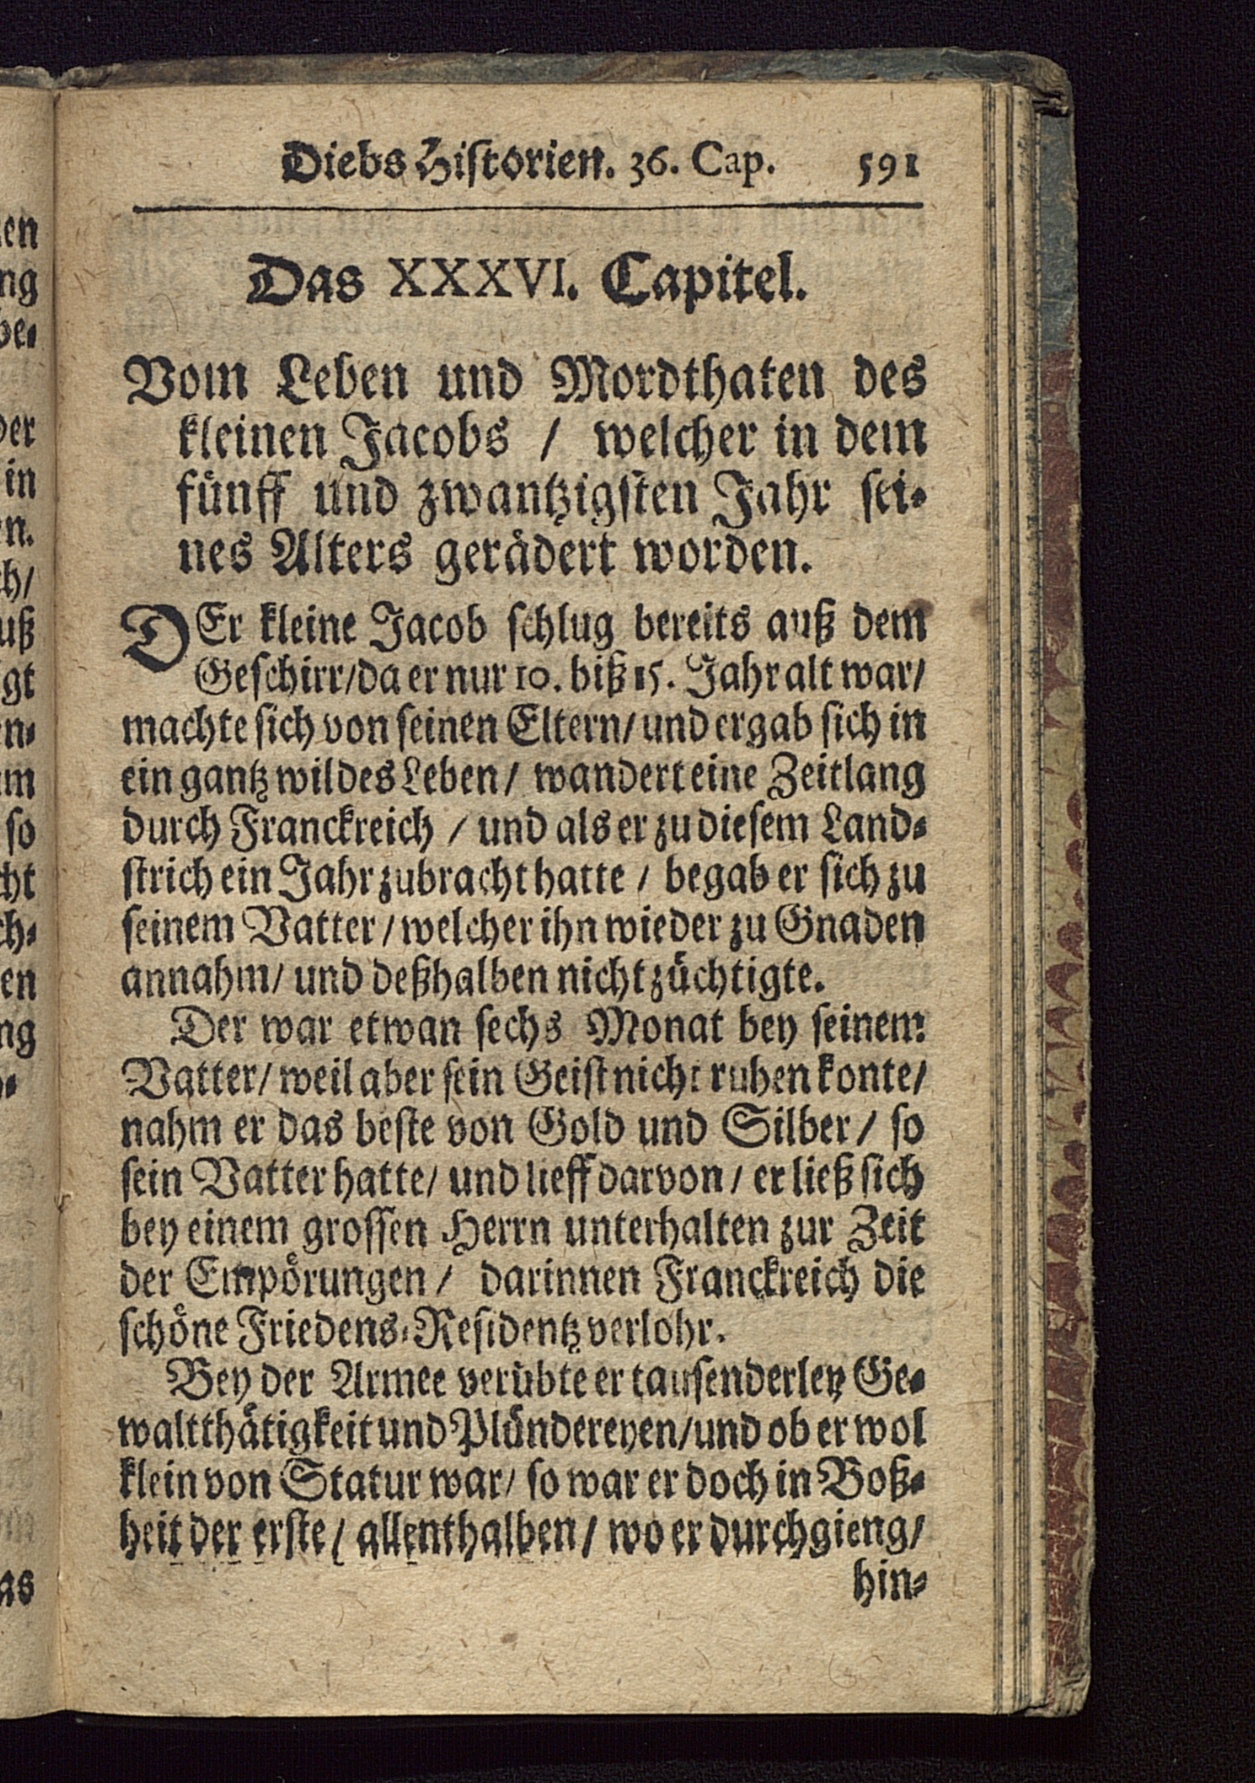 Diebs Historien. 36. Cap. 591
Das XXXVI. Capitel.
Vom Leben und Mordthaten des
kleinen Jacobs / welcher in dem
fünff und zwantzigsten Jahr sei-
nes Alters gerädert worden.
DEr kleine Jacob schlug bereits auß dem
Geschirr/da er nur 10. biß 15. Jahr alt war/
machte sich von seinen Eltern/ und ergab sich in
ein gantz wildes Leben/ wandert eine Zeitlang
durch Franckreich / und als er zu diesem Land-
strich ein Jahr zubracht hatte / begab er sich zu
seinem Vatter/ welcher ihn wieder zu Gnaden
annahm/ und deßhalben nicht züchtigte.
Der war etwan sechs Monat bey seinem
Vatter/ weil aber sein Geist nicht ruhen konte/
nahm er das beste von Gold und Silber/ so
sein Vatter hatte/ und lieff darvon/ er ließ sich
bey einem grossen Herrn unterhalten zur Zeit
der Empörungen/ darinnen Franckreich die
schöne Friedens-Residentz verlohr.
Bey der Armee verübte er tausenderley Ge-
waltthätigkeit und Plündereyen/und ob er wol
klein von Statur war/ so war er doch in Boß-
heit der erste/ allenthalben/ wo er durchgieng/
hin-